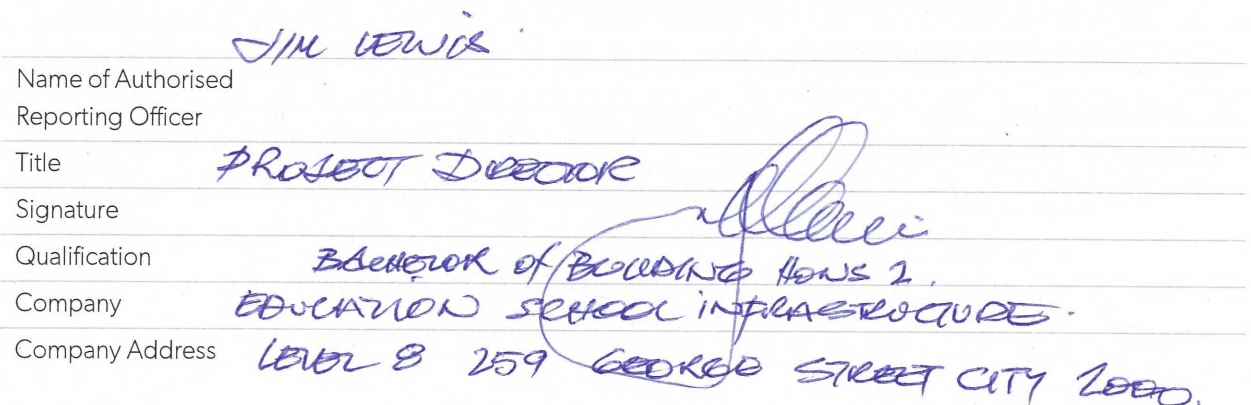 JIM LEWIS
Name of Authorised
Reporting Officer
Title PROJECT DIRECTOR
Signature
Qualification BACHELOR of BUILDING HONS 2.
Company EDUCATION SCHOOL INFRASTRUCTURE.
Company Address LEVEL 8 259 GEORGE STREET CITY 2000.